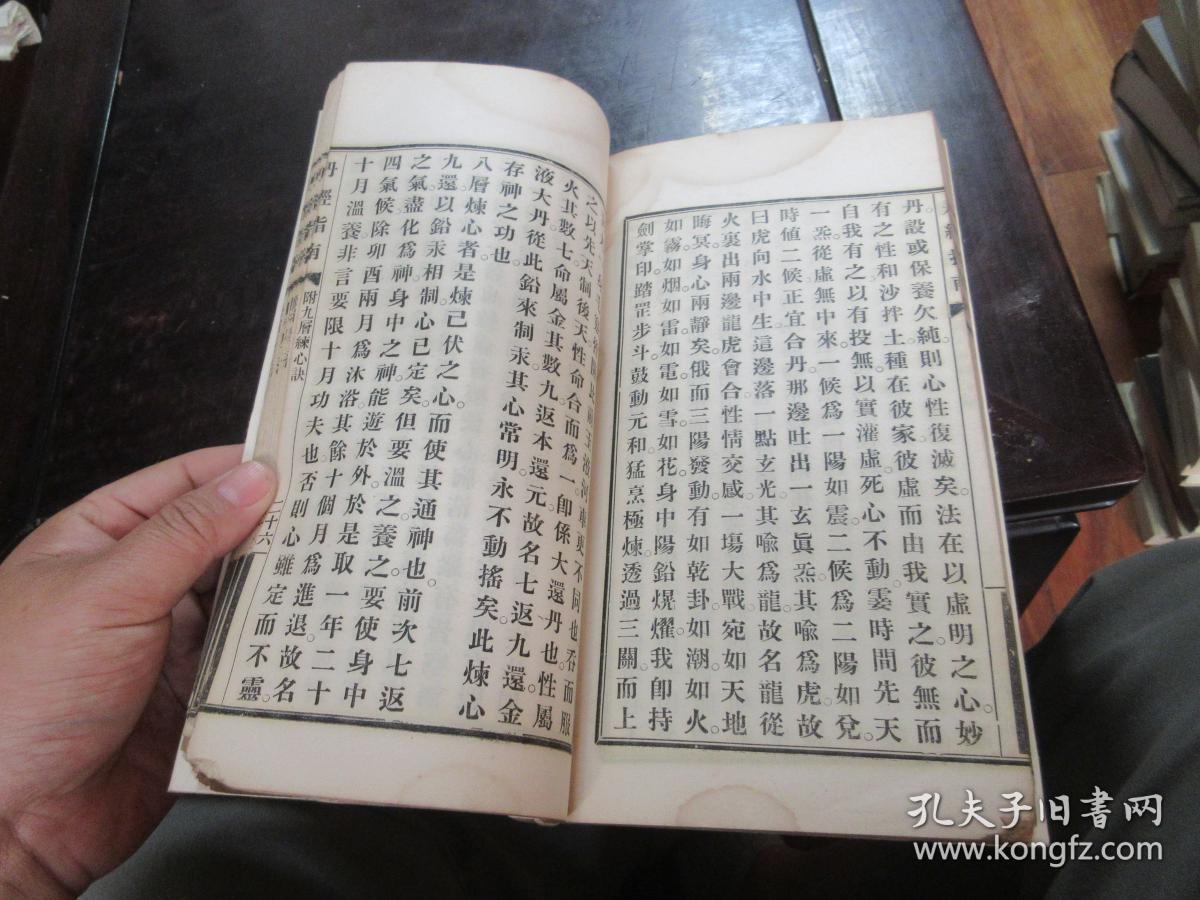 丹。設或保養欠純。則心性復滅矣。法在以虛明之心。妙
有之性。和沙拌土。種在彼家。彼虛而由我實之。彼無而
自我有之。以有投無。以實灌虛。死心不動。霎時間先天
一炁。從虛無中來。一候爲一陽如震。二候爲二陽如兌。
時値二候。正宜合丹。那邊吐出一玄眞炁。其喩爲虎。故
曰虎向水中生。這邊落一點玄光。其喩爲龍。故名龍從
火裏出。兩邊龍虎會合。性情交感。一塲大戰。宛如天地
晦冥。身心兩靜矣。俄而三陽發動。有如乾卦。如潮如火。
如霧如烟。如雷如電。如雪如花。身中陽鉛熀燿。我卽持
劍掌印。踏罡步斗。鼓動元和。猛烹極煉。透過三關。而上
河車更不同也。呑而服
之。以先天制後天。性命合而爲一。卽係大還丹也。性屬
火。其數七。命屬金。其數九。返本還元。故名七返九還。金
液大丹。從此鉛來制汞。其心常明。永不動搖矣。此煉心
存神之功也。
八層煉心者。是煉己伏之心。而使其通神也。前次七返
九還。以鉛汞相制。心已定矣。但要溫之養之。要使身中
之氣。盡化爲神。身中之神。能遊於外。於是取一年二十
四氣候。除卯酉兩月爲沐浴。其餘十個月爲進退。故名
十月溫養。非言要限十月功夫也。否則心雖定而不靈。
丹經指南
附九層練心訣
二十六
孔夫子旧書网
www.kongfz.com